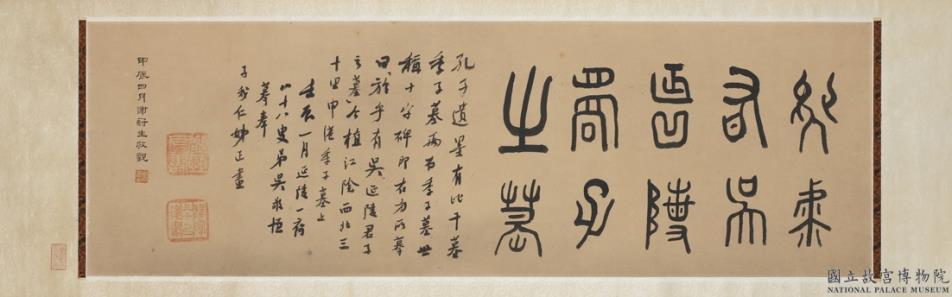 於虖
有吳
延陵
君子
之墓
孔子遺墨有比干墓
季子墓兩石季子墓世
稱十字碑即右方所摹
曰於乎有吳延陵君子
之墓今植江陰西北三
十里申港季子墓上
壬辰一月延陵
八十八叟弟吳敬恒
摹奉
子我仁姊正
甲辰四月
生敬觀
國立故宮博物院
NATIONAL PALACE MUSEUM